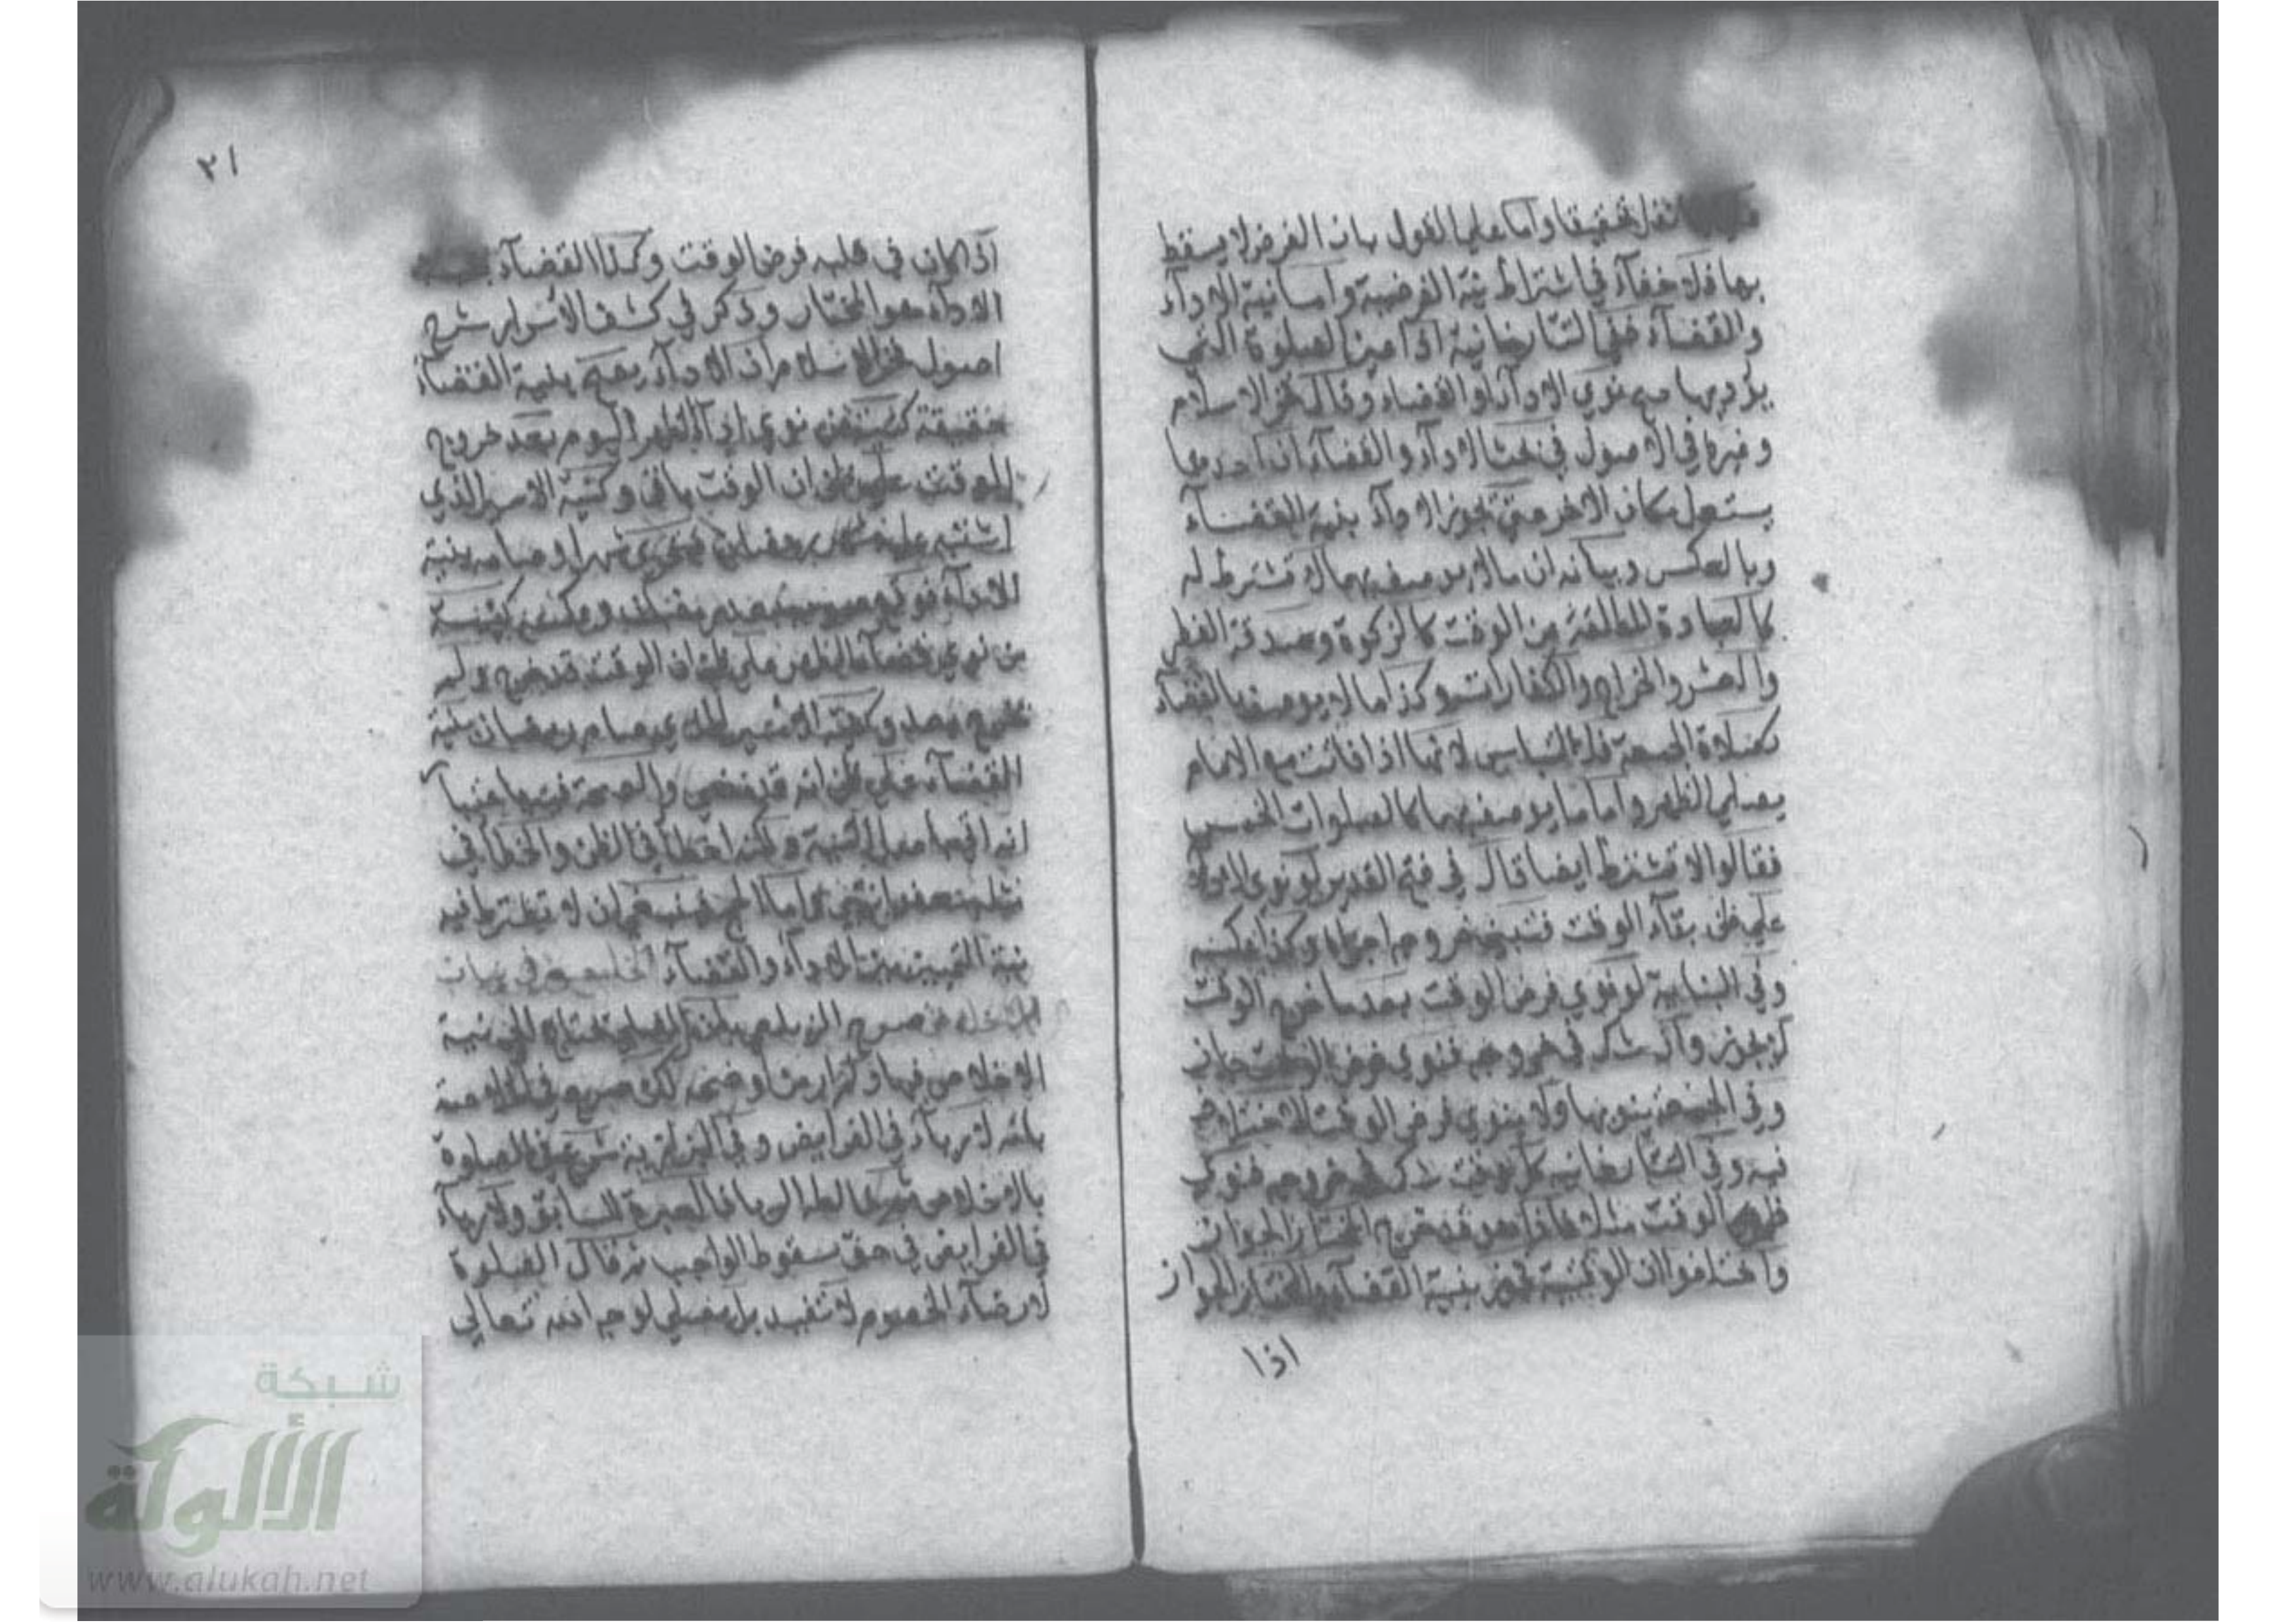 النفل تحقيقا واما على القول بان الفرض لا يسقط
بها فلا خفآء في اشتراط نية الفرضية واما نية الادآء
والقضآء ففي التتارخانية اذا عين الصلوة التي
يؤديها صح نوى الادآء او القضاء وقال فخر الاسلام
وغيره في الاصول في بحث الادآء والقضآء ان احدهما
يستعمل مكان الاخر حتى يجوز الادآء بنية القضآء
وبالعكس وبيانه ان ما لا يوصف بهما لا تشترط له
كالعبادة المطلقة عن الوقت كالزكوة وصدقة الفطر
والعشر والخراج والكفارات وكذا ما لا يوصف بالقضآء
كصلاة الجمعة فلا التباس لانها اذا فاتت مع الامام
يصلي الظهر واما ما يوصف بهما كالصلوات الخمس
فقالوا لا تشترط ايضا قال في فتح القدير لو نوى الادآء
على ظن بقآء الوقت فتبين خروجه اجزاه وكذا عكسه
وفي البناية لو نوى فرض الوقت بعد ما خرج الوقت
لا يجوز وان شك في خروجه فنوى فرض الوقت جاز
وفي الجمعة ينويها ولا ينوي فرض الوقت للاختلاف
فيه وفي التتارخانية كل وقت شك في خروجه فنوى
ظهر الوقت مثلا فاذا هو قد خرج المختار الجواز
واختلفوا ان الوقتية تجوز بنية القضآء والمختار الجواز
اذا
٢١
اذا كان في قلبه فرض الوقت وكذا القضآء بنية
الادآء هو المختار وذكر في كشف الاسرار شرح
اصول فخر الاسلام ان الادآء يصح بنية القضآء
حقيقة كنية من نوى ادآء ظهر اليوم بعد خروج
الوقت على ظن ان الوقت باقي وكنية الاسير الذي
اشتبه عليه شهر رمضان فتحرى شهرا وصامه بنية
الادآء فوقع صومه بعد رمضان وعكسه كنية
من نوى قضآء الظهر على ظن ان الوقت قد خرج ولم
يخرج بعد وكنية الاسير الذي صام رمضان بنية
القضآء على ظن انه قد مضى والصحة فيه باعتبار
انه اتى باصل النية ولكنه اخطا في الظن والخطا في
مثله معفو انتهى واما الحج فينبغي ان لا تشترط فيه
نية التمييز بين الادآء والقضآء الخامس في بيان
الاخلاص صرح الزيلعي بان المصلي يحتاج الى نية
الاخلاص فيها ولم ار من اوضحه لكن صرح في الخلاصة
بانه لا رياء في الفرايض وفي البزازية شرع في الصلوة
بالاخلاص ثم خالطه الريا فالعبرة للسابق ولا رياء
في الفرايض في حق سقوط الواجب ثم قال الصلوة
لارضآء الخصوم لا تفيد بل يصلي لوجه الله تعالى
شبكة
الألوكة
www.alukah.net